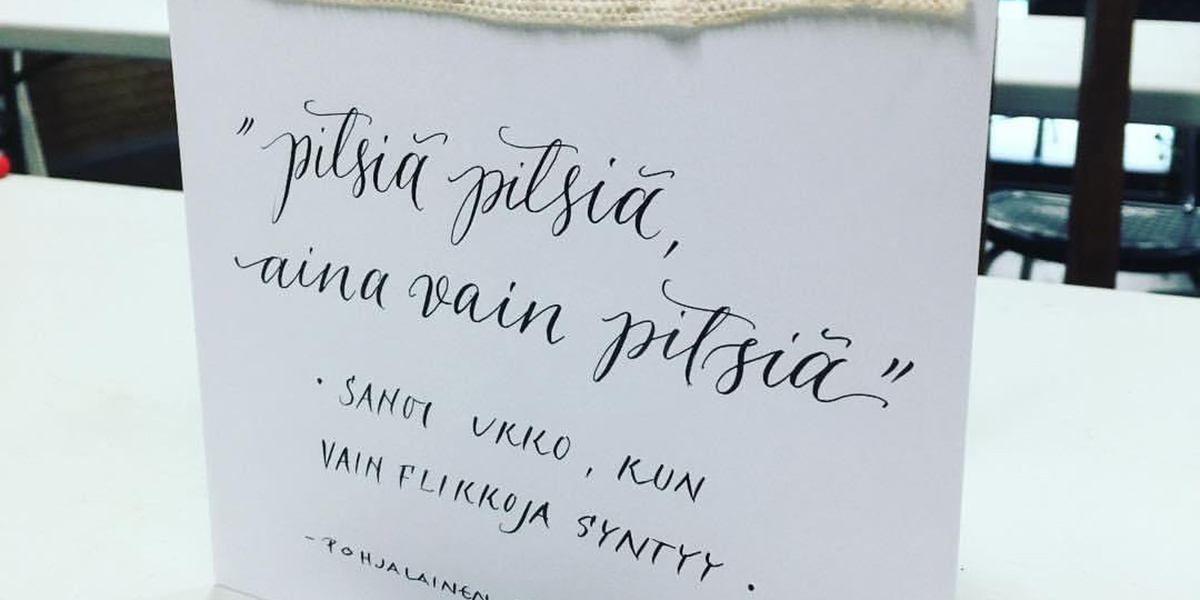 "pitsiä pitsiä,
aina vain pitsiä"
· SANOI UKKO, KUN
VAIN FLIKKOJA SYNTYY .
- POHJALAINEN